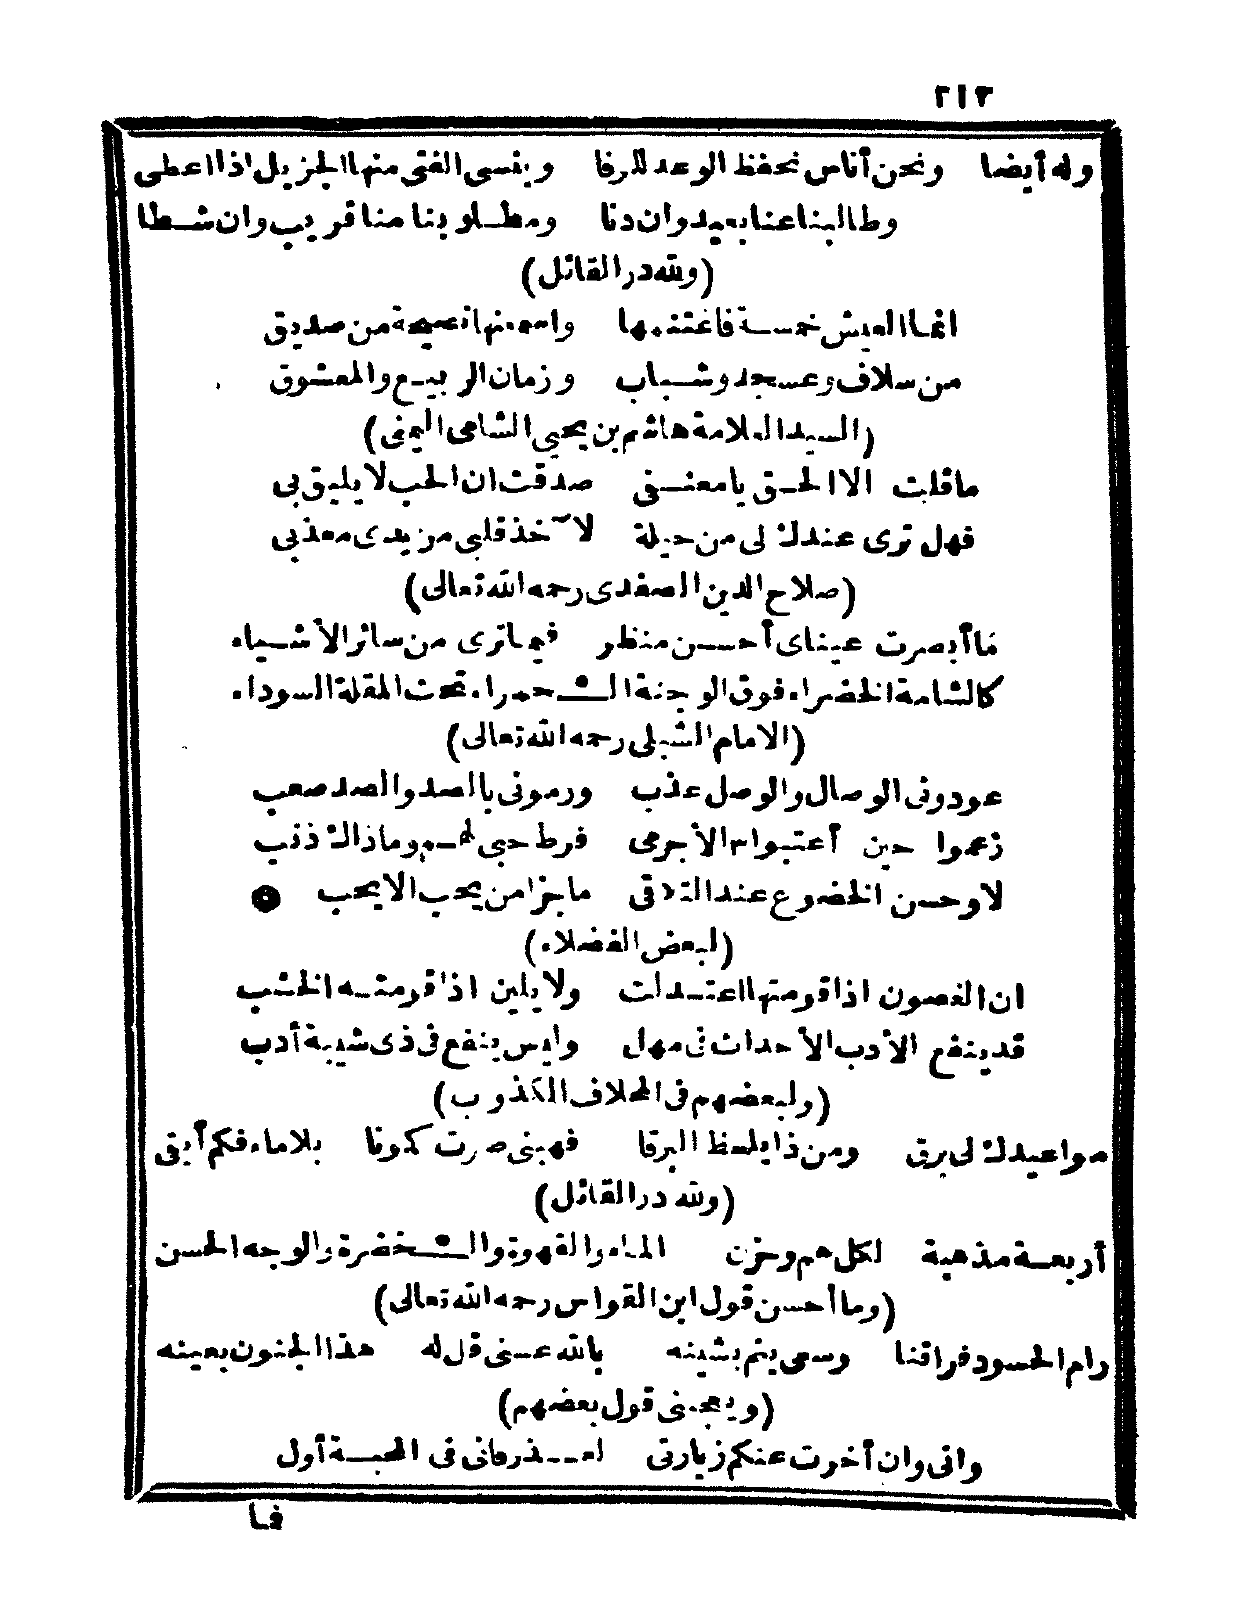 ٢١٣
وله أيضا ونحن أناس نحفظ الوعد للرفا وينسى الفتى منها الجزيل اذا اعطى
وطالبنا عنا بعيد وان دنا ومطلوبنا منا قريب وان شطا
(ولله در القائل)
انما العيش خمسة فاغتنمها واسمعنها نصيحة من صديق
من سلاف وعسجد وشباب وزمان الربيع والمعشوق
(السيد العلامة هاشم بن يحيى الشامى اليمنى)
ماقلت الا الحق يا معنفى صدقت ان الحب لا يليق بى
فهل ترى عندك لى من حيلة لا خذ قلبى من يدى معذبى
(صلاح الدين الصفدى رحمه الله تعالى)
فما أبصرت عيناى أحسن منظر فيما ترى من سائر الأشياء
كالشامة الخضراء فوق الوجنة الحمراء تحت المقلة السوداء
(الامام الشبلى رحمه الله تعالى)
عودونى الوصال والوصل عذب ورمونى بالصد والصد صعب
زعموا حين أعتبوا الأجرمى فرط حبى لهم وماذاك ذنب
لا وحسن الخضوع عند التلاقى ماجزا من يحب الا يحب
(لبعض الفضلاء)
ان الغصون اذا قومتها اعتدلت ولا يلين اذا قومته الخشب
قد ينفع الأدب الأحداث فى مهل وليس ينفع فى ذى شيبة أدب
(ولبعضهم فى المخلاف الكذوب)
مواعيدك لى برق ومن ذا يلحظ البرقا فهبنى صرت كمونا بلا ماء فكم أبقى
(ولله در القائل)
أربعة مذهبة لكل هم وحزن الماء والقهوة والخضرة والوجه الحسن
(وما أحسن قول ابن القواس رحمه الله تعالى)
رام الحسود فراقنا وسعى ينم بشينه بالله عنى قل له هذا الجنون بعينه
(ويعجبنى قول بعضهم)
وانى وان أخرت عنكم زيارتى لعذر فانى فى المحبة أول
فا